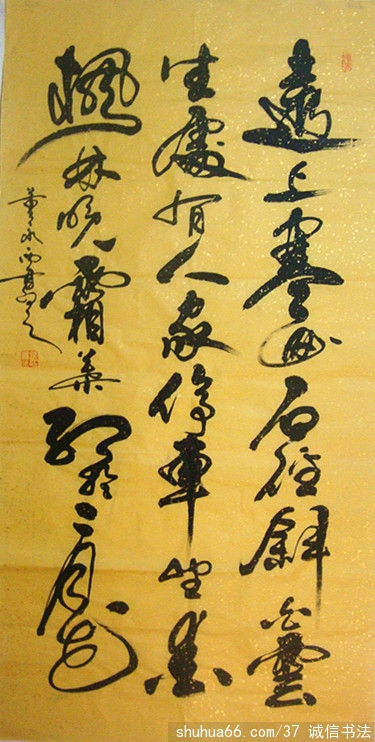 遠上寒山石徑斜白雲
生處有人家停車坐愛
楓林晚霜葉紅於二月花
董永書
shuhua66.com/37 诚信书法